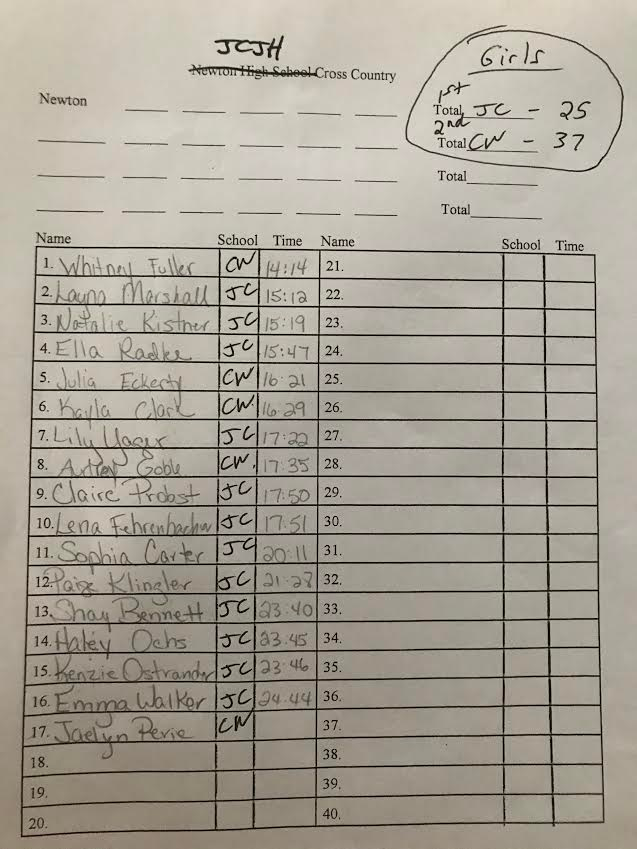 JCJH
Newton High School Cross Country
Girls
Newton
1st
Total JC - 25
2nd
Total CW - 37
Total
Total
Name School Time Name School Time
1. Whitney Fuller CW 14:14 21.
2. Layna Marshall JC 15:12 22.
3. Natalie Kistner JC 15:19 23.
4. Ella Radke JC 15:47 24.
5. Julia Eckerty CW 16:21 25.
6. Kayla Clark CW. 16:29 26.
7. Lily Yager JC 17:22 27.
8. Goble CW. 17:35 28.
9. Claire Probst JC 17:50 29.
10. Lena Fehrenbacher JC 17:51 30.
11. Sophia Carter JC 20:11 31.
12. Paige Klingler JC 21:28 32.
13. Shay Bennett JC 23:40 33.
14. Haley Ochs JC 23:45 34.
15. Kenzie Ostrander JC 23:46 35.
16. Emma Walker JC 24:44 36.
17. Jaelyn CW 37.
18. 38.
19. 39.
20. 40.